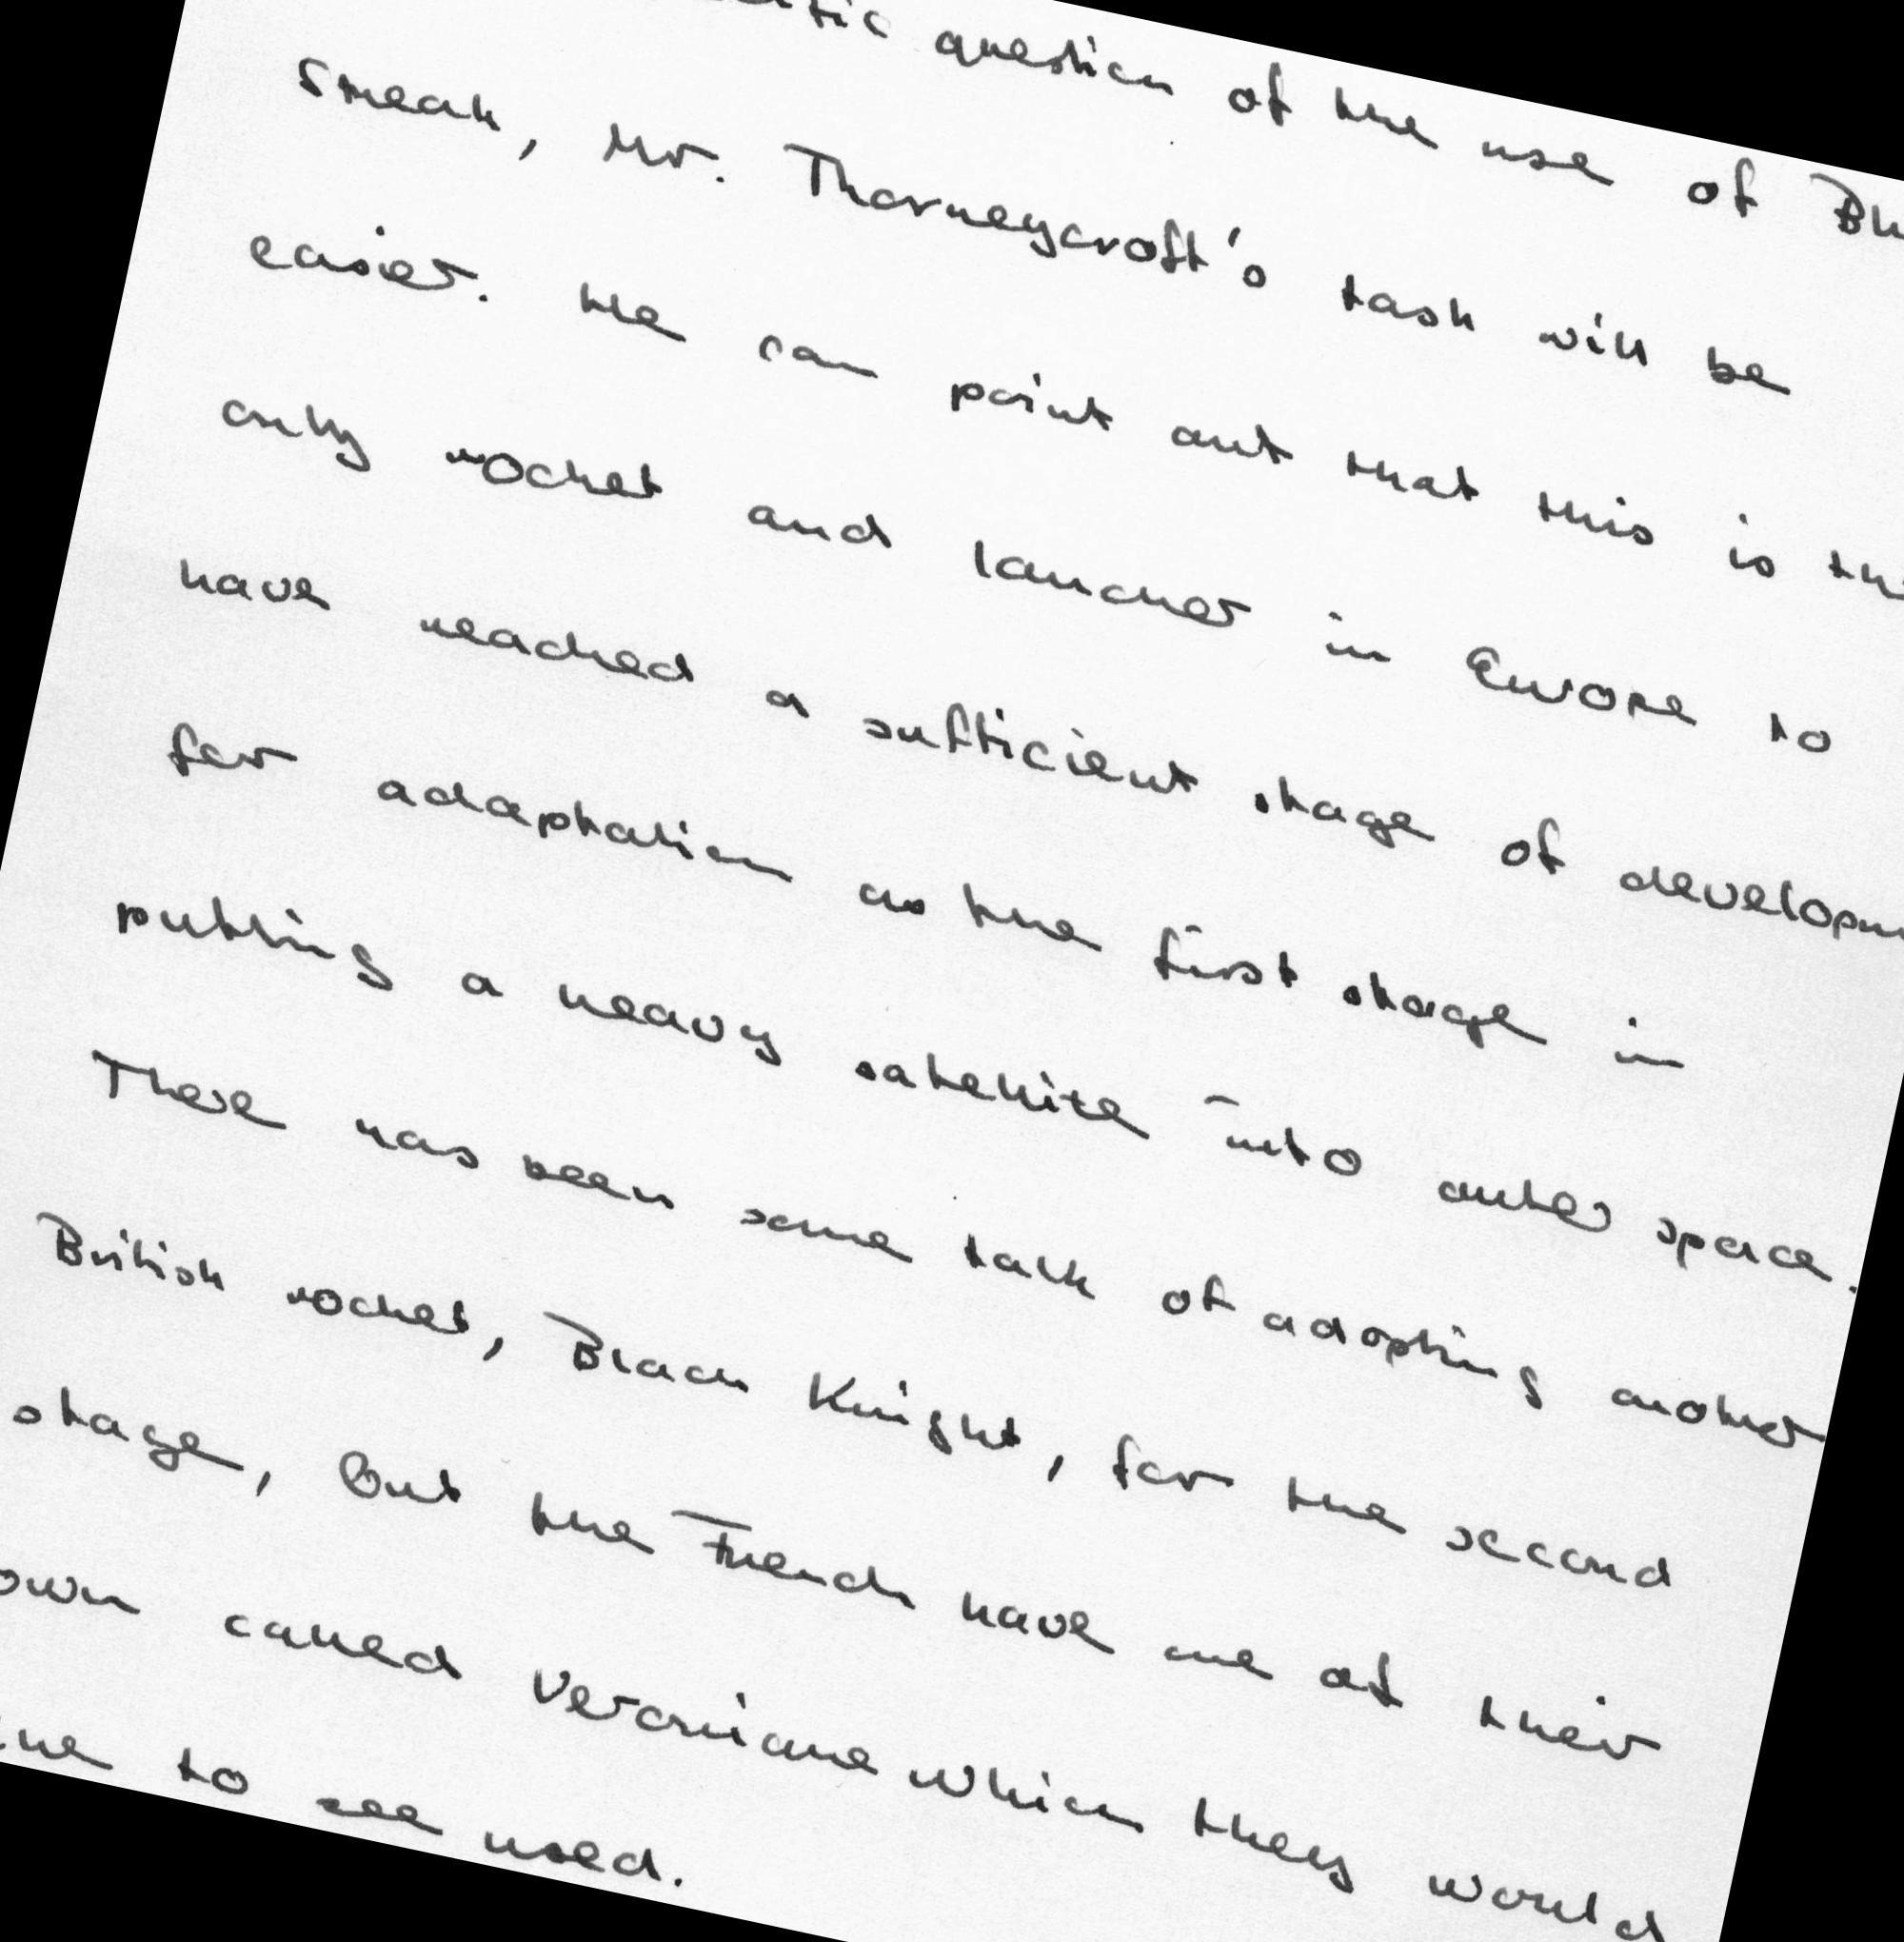 question of the use of
Streak, Mr. Thorneycroft's task will be
easier. He can point out that this is the
only rocket and launcher in Europe to
have reached a sufficient stage of
for adaptation as the first stage in
putting a heavy satellite into outer space.
There has been some talk of adopting another
British rocket, Black Knight, for the second
stage, but the French have one of their
own called Veronique which they would
to see used.